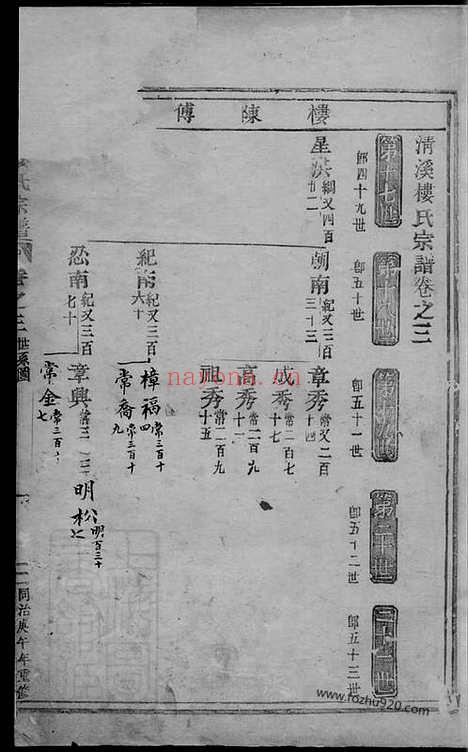 樓陳傅
清溪樓氏宗譜卷之三
第十七世
即四十九世
第十八世
即五十世
第十九世
即五十一世
第二十世
即五十二世
二十一世
即五十三世
星洪 綱又四百廿二
朝南 紀又三百三十三
章秀 常又二百十四
成秀 常二百七十
高秀 常二百九十一
祀秀 常二百九十五
紀南 紀又三百六十
樟福 常三百十四
常喬 常三百十九
忍南 紀又三百七十
章興
明松 明百三十七
常金
氏宗譜
卷之三
世系圖
同治庚午年重修
nayona.cn
www.fozhu920.com